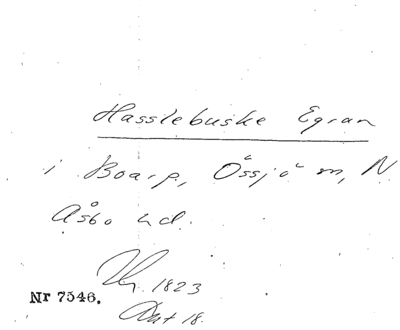 Hasslebuske Egran
i Boarp, Össjö sn, N
Åsbo hd.
1823
Nr 7546.
Akt 18.